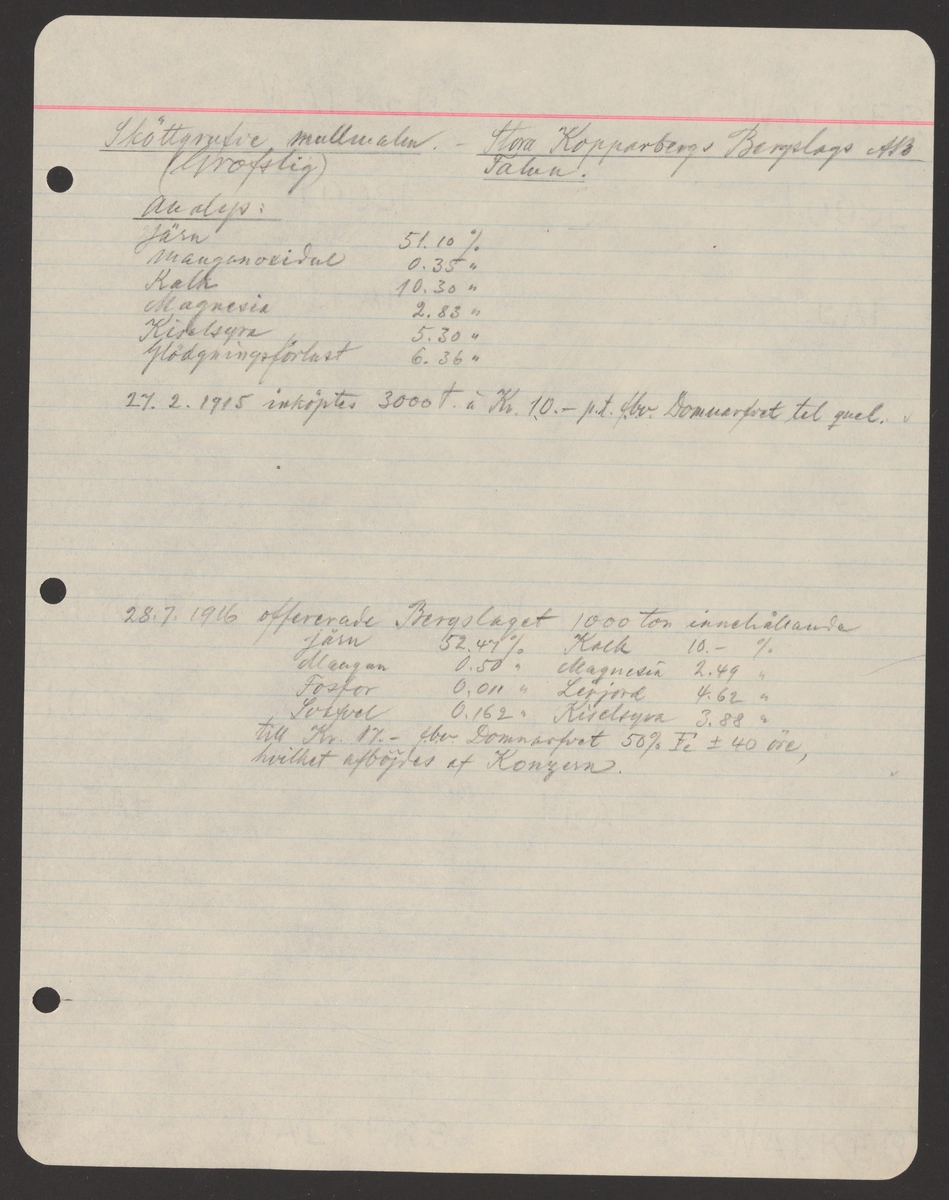 Sköttgrufve mullmalm. – Stora Kopparbergs Bergslags AB
(Grofslig) Falun.
Analys:
Järn 51.10 %
Manganoxidul 0.35 "
Kalk 10.30 "
Magnesia 2.83 "
Kiselsyra 5.30 "
Glödgningsförlust 6.36 "
27. 2. 1915 inköptes 3000 t. à Kr. 10.– p.t. fbv. Domnarfvet tel quel.
28.7. 1916 offererade Bergslaget 1000 ton innehållande
Järn 52.47 % Kalk 10.– %
Mangan 0.50 " Magnesia 2.49 "
Fosfor 0.011 " Lerjord 4.62 "
Svafvel 0.162 " Kiselsyra 3.88 "
till Kr. 17.– fbv. Domnarfvet 50% Fe ± 40 öre,
hvilket afböjdes af Konzern.